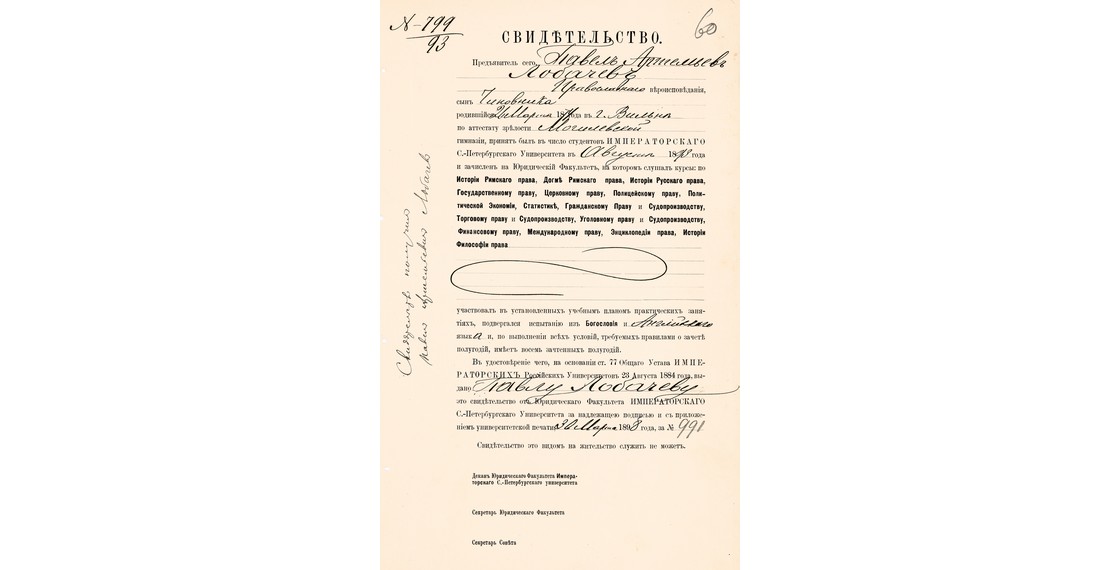 N-799
93
60
СВИДѢТЕЛЬСТВО.
Предъявитель сего, Павелъ Артемьевъ
Лобачевъ
Православнаго вѣроисповѣданія,
сынъ Чиновника
родившійся Марта 18 года въ г. Вильнѣ
по аттестату зрѣлости Могилевской
гимназіи, принятъ былъ въ число студентовъ ИМПЕРАТОРСКАГО
С.-Петербургскаго Университета въ Августѣ 18 года
и зачисленъ на Юридическій Факультетъ, на которомъ слушалъ курсы: по
Исторіи Римскаго права, Догмѣ Римскаго права, Исторіи Русскаго права,
Государственному праву, Церковному праву, Полицейскому праву, Поли-
тической Экономіи, Статистикѣ, Гражданскому Праву и Судопроизводству,
Торговому праву и Судопроизводству, Уголовному праву и Судопроизводству,
Финансовому праву, Международному праву, Энциклопедіи права, Исторіи
Философіи права
участвовалъ въ установленныхъ учебнымъ планомъ практическихъ заня-
тіяхъ, подвергался испытанію изъ Богословія и Англійскаго
языка и, по выполненіи всѣхъ условій, требуемыхъ правилами о зачетѣ
полугодій, имѣетъ восемь зачтенныхъ полугодій.
Въ удостовѣреніе чего, на основаніи ст. 77 Общаго Устава ИМПЕ-
РАТОРСКИХЪ Россійскихъ Университетовъ 23 Августа 1884 года, вы-
дано Павлу Лобачеву
это свидѣтельство отъ Юридическаго Факультета ИМПЕРАТОРСКАГО
С.-Петербургскаго Университета за надлежащею подписью и съ приложе-
ніемъ университетской печати 30 Марта 1898 года, за № 991
Свидѣтельство это видомъ на жительство служить не можетъ.
Деканъ Юридическаго Факультета Импера-
торскаго С.-Петербургскаго университета
Секретарь Юридическаго Факультета
Секретарь Совѣта
Свидѣтельство получилъ
Павелъ Артемьевичъ Лобачев